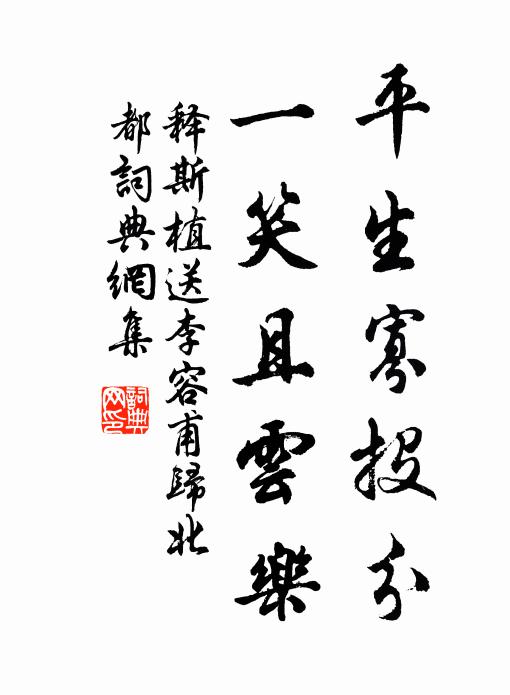 平生寡投分
一笑且雲樂
释斯植送李容甫歸北
都詞典網集
詞典网印